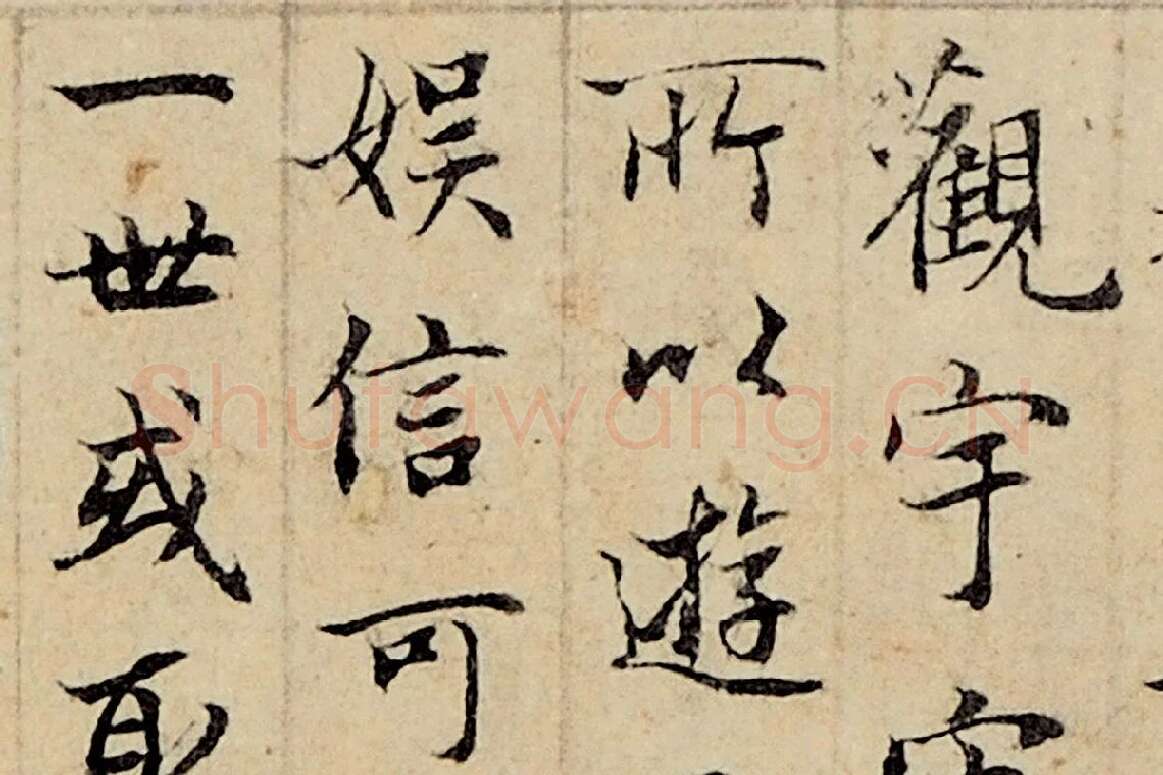 觀宇
所以遊
娛信可
一世或取
Shufawang.CN